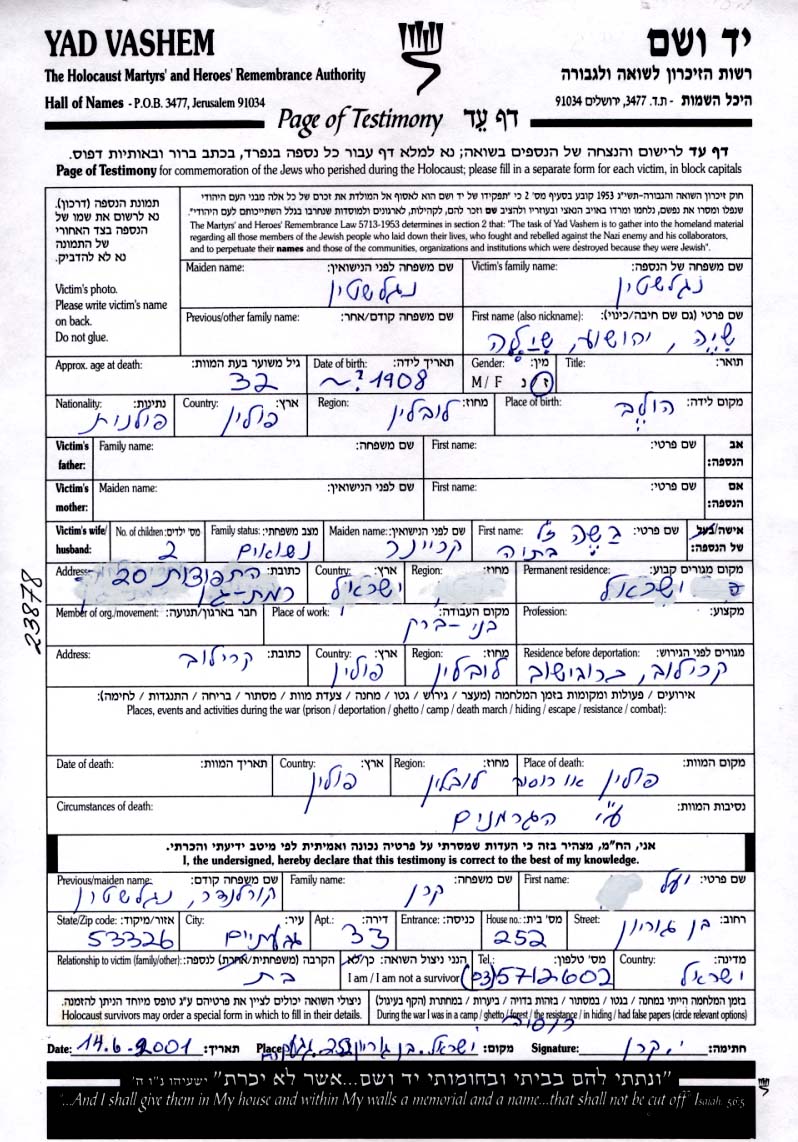 YAD VASHEM
The Holocaust Martyrs' and Heroes' Remembrance Authority
Hall of Names - P.O.B. 3477, Jerusalem 91034
יד ושם
רשות הזיכרון לשואה ולגבורה
היכל השמות - ת.ד. 3477, ירושלים 91034
Page of Testimony דף עֵד
דף עד לרישום והנצחה של הנספים בשואה; נא למלא דף עבור כל נספה בנפרד, בכתב ברור ובאותיות דפוס.
Page of Testimony for commemoration of the Jews who perished during the Holocaust; please fill in a separate form for each victim, in block capitals
תמונת הנספה (דרכון).
נא לרשום את שמו של
הנספה בצד האחורי
של התמונה
נא לא להדביק.
Victim's photo.
Please write victim's name
on back.
Do not glue.
חוק זיכרון השואה והגבורה-תשי"ג 1953 קובע בסעיף מס' 2 כי "תפקידו של יד ושם הוא לאסוף אל המולדת את זכרם של כל אלה מבני העם היהודי
שנפלו ומסרו את נפשם, נלחמו ומרדו באויב הנאצי ובעוזריו ולהציב שם וזכר להם, לקהילות, לארגונים ולמוסדות שנחרבו בגלל השתייכותם לעם היהודי".
The Martyrs' and Heroes' Remembrance Law 5713-1953 determines in section 2 that: "The task of Yad Vashem is to gather into the homeland material
regarding all those members of the Jewish people who laid down their lives, who fought and rebelled against the Nazi enemy and his collaborators,
and to perpetuate their names and those of the communities, organizations and institutions which were destroyed because they were Jewish".
Maiden name: שם משפחה לפני הנישואין:
נגלשטין
Victim's family name: שם משפחה של הנספה:
נגלשטין
Previous/other family name: שם משפחה קודם/אחר:
First name (also nickname): שם פרטי (גם שם חיבה/כינוי):
יהושע,
Approx. age at death: גיל משוער בעת המוות:
32
Date of birth: תאריך לידה:
~ 1908 ?
Gender: מין:
M / F ז נ
Title: תואר:
Nationality: נתינות:
פולנית
Country: ארץ:
פולין
Region: מחוז:
לובלין
Place of birth: מקום לידה:
Victim's father: Family name: שם משפחה: First name: שם פרטי: אב הנספה:
Victim's mother: Maiden name: שם לפני הנישואין: First name: שם פרטי: אם הנספה:
Victim's wife/ husband: No. of children: מס' ילדים:
2
Family status: מצב משפחתי:
נשואים
Maiden name: שם לפני הנישואין:
קריינר
First name: שם פרטי:
בתיה
אישה/בעל של הנספה:
Address: כתובת:
התפוצות 20
רמת-גן
Country: ארץ:
ישראל
Region: מחוז:
Permanent residence: מקום מגורים קבוע:
ישראל
Member of org./movement: חבר בארגון/תנועה:
Place of work: מקום העבודה:
בני-ברק
Profession: מקצוע:
Address: כתובת:
קרילוב
Country: ארץ:
פולין
Region: מחוז:
לובלין
Residence before deportation: מגורים לפני הגירוש:
קרילוב, הרוביישוב
אירועים / פעולות ומקומות בזמן המלחמה (מעצר / גירוש / גטו / מחנה / צעדת מוות / מסתור / בריחה / התנגדות / לחימה):
Places, events and activities during the war (prison / deportation / ghetto / camp / death march / hiding / escape / resistance / combat):
Date of death: תאריך המוות:
Country: ארץ:
פולין
Region: מחוז:
לובלין
Place of death: מקום המוות:
פולין או רוסיה
Circumstances of death: נסיבות המוות:
ע"י הגרמנים
אני, הח"מ, מצהיר בזה כי העדות שמסרתי על פרטיה נכונה ואמיתית לפי מיטב ידיעתי והכרתי.
I, the undersigned, hereby declare that this testimony is correct to the best of my knowledge.
Previous/maiden name: שם משפחה קודם:
קורלנדר, נגלשטין
Family name: שם משפחה:
קרן
First name: שם פרטי:
יעל
State/Zip code: אזור/מיקוד:
53326
City: עיר:
גבעתיים
Apt.: דירה:
33
Entrance: כניסה:
House no.: מס' בית:
252
Street: רחוב:
בן גוריון
Relationship to victim (family/other): הקרבה (משפחתית/אחרת) לנספה:
בת
הנני ניצול השואה: כן/לא
I am / I am not a survivor
Tel.: מס' טלפון:
(03)5712602
Country: מדינה:
ישראל
ניצולי השואה יכולים לציין את פרטיהם ע"ג טופס מיוחד הניתן להזמנה.
Holocaust survivors may order a special form in which to fill in their details.
בזמן המלחמה הייתי במחנה / בגטו / במסתור / בזהות בדויה / ביערות / במחתרת (הקף בעיגול)
During the war I was in a camp / ghetto / forest / the resistance / in hiding / had false papers (circle relevant options)
רוסיה
Date: 14.6.2001 תאריך: Place ישראל. בן גוריון 252 מקום: Signature: י. קרן חתימה:
"ונתתי להם בביתי ובחומותי יד ושם...אשר לא יכרת" ישעיהו נ"ו ה'
"...And I shall give them in My house and within My walls a memorial and a name...that shall not be cut off" Isaiah. 56:5
23878